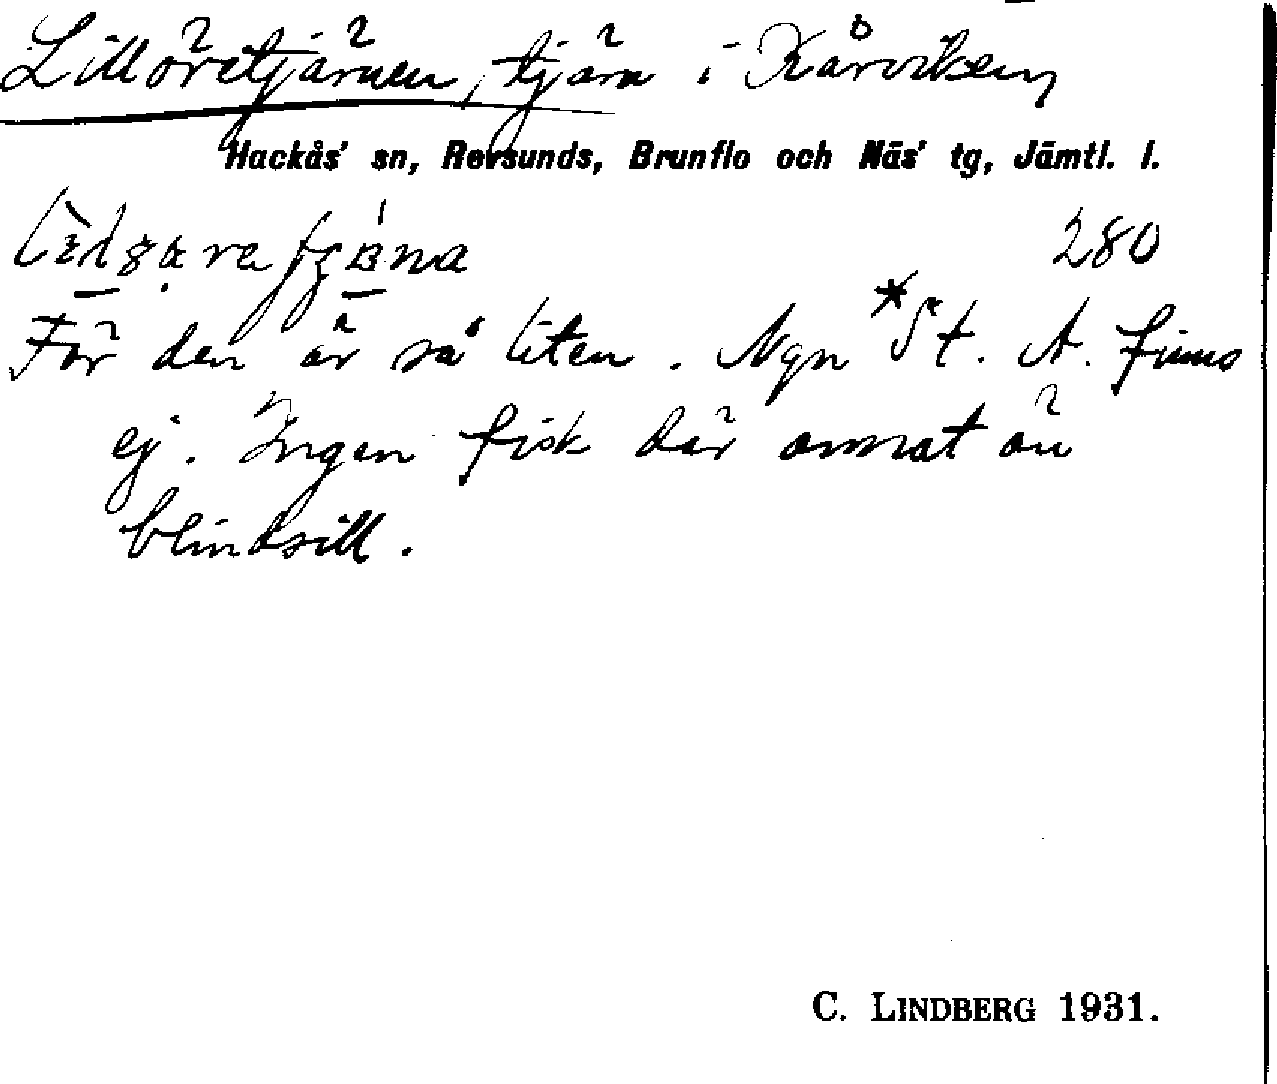 Lilloretjärnen, tjärn i Kårviken,
Hackås' sn, Revsunds, Brunflo och Näs' tg, Jämtl. l.
280
För den är så liten. Ngn *St. A. finns
ej. Ingen fisk där annat än
blindsill.
C. LINDBERG 1931.